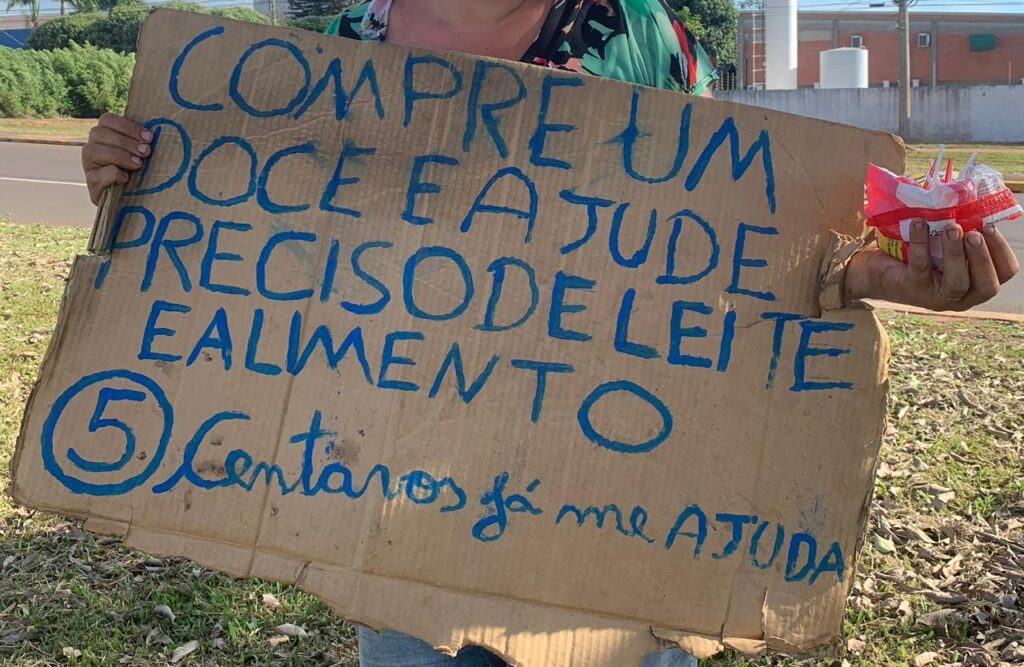 COMPRE UM
DOCE E AJUDE
PRECISO DE LEITE
E ALIMENTO
5 Centavos já me AJUDA